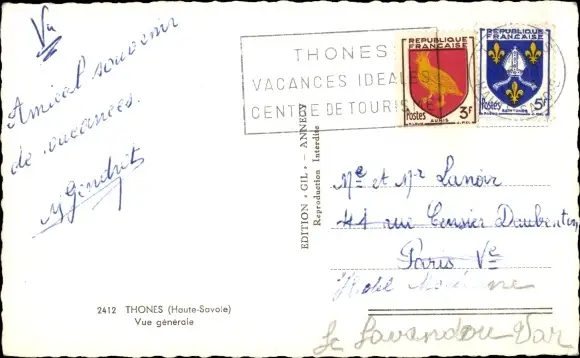 Vu
Amical souvenir
de vacances.
M Gendrit
2412 THONES (Haute-Savoie)
Vue générale
EDITION "GIL" - ANNECY
Reproduction Interdite
THONES
VACANCES IDEALES
CENTRE DE TOURISME
REPUBLIQUE
FRANÇAISE
Postes 3F
AUNIS
REPUBLIQUE
FRANÇAISE
Postes 5F
SAINTONGE
Me et Mr Lanoir
41 rue Censier Daubenton
Paris Ve
Hotel
Le Lavandou - Var